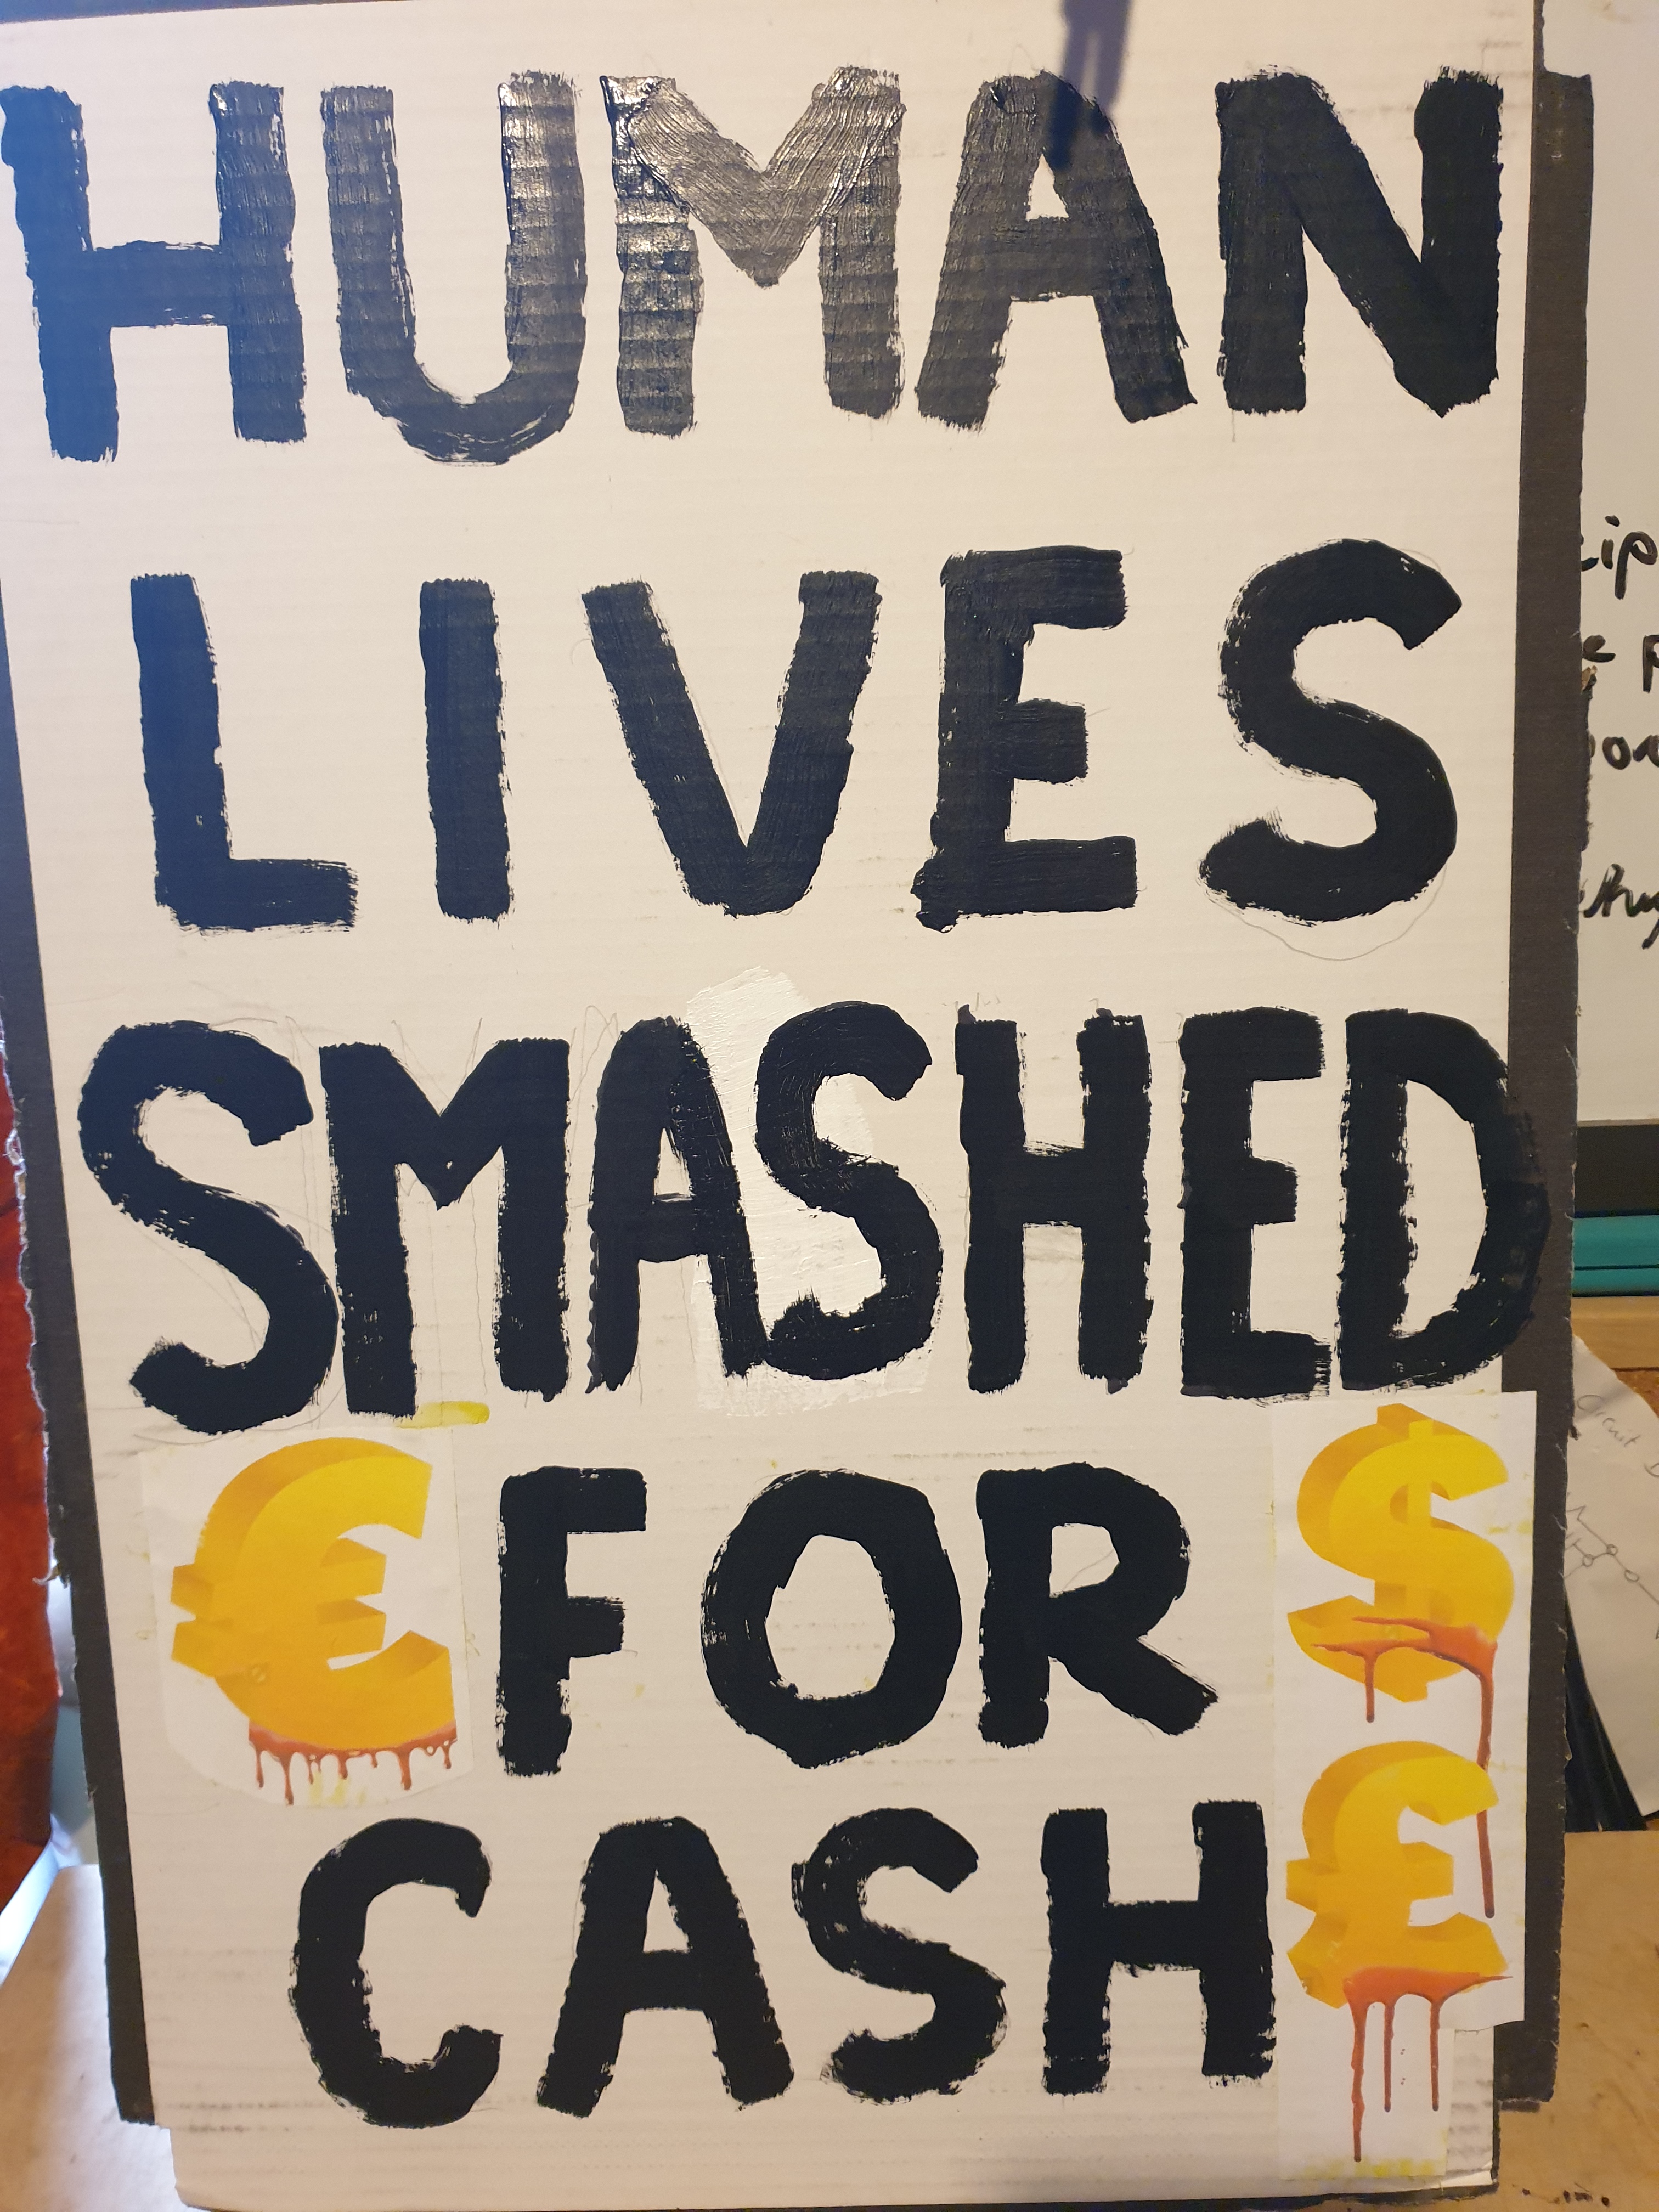 HUMAN
LIVES
SMASHED
€ FOR $
CASH £